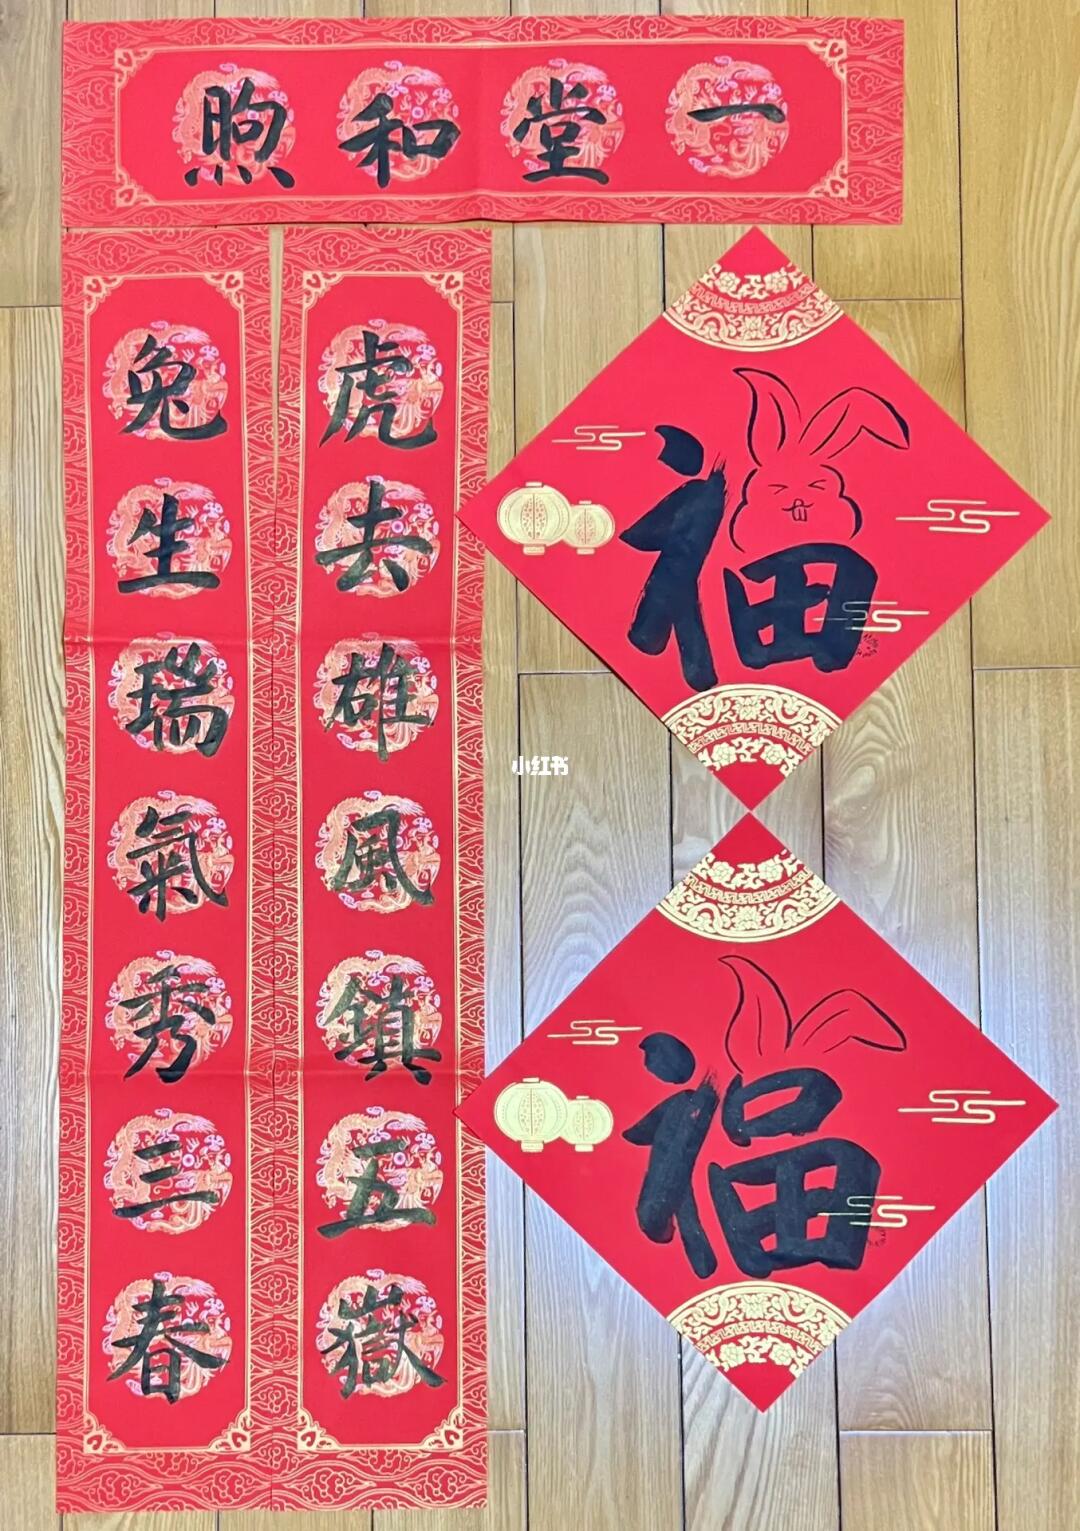 一堂和煦
虎去雄風鎮五嶽
兔生瑞氣秀三春
福
福
小红书